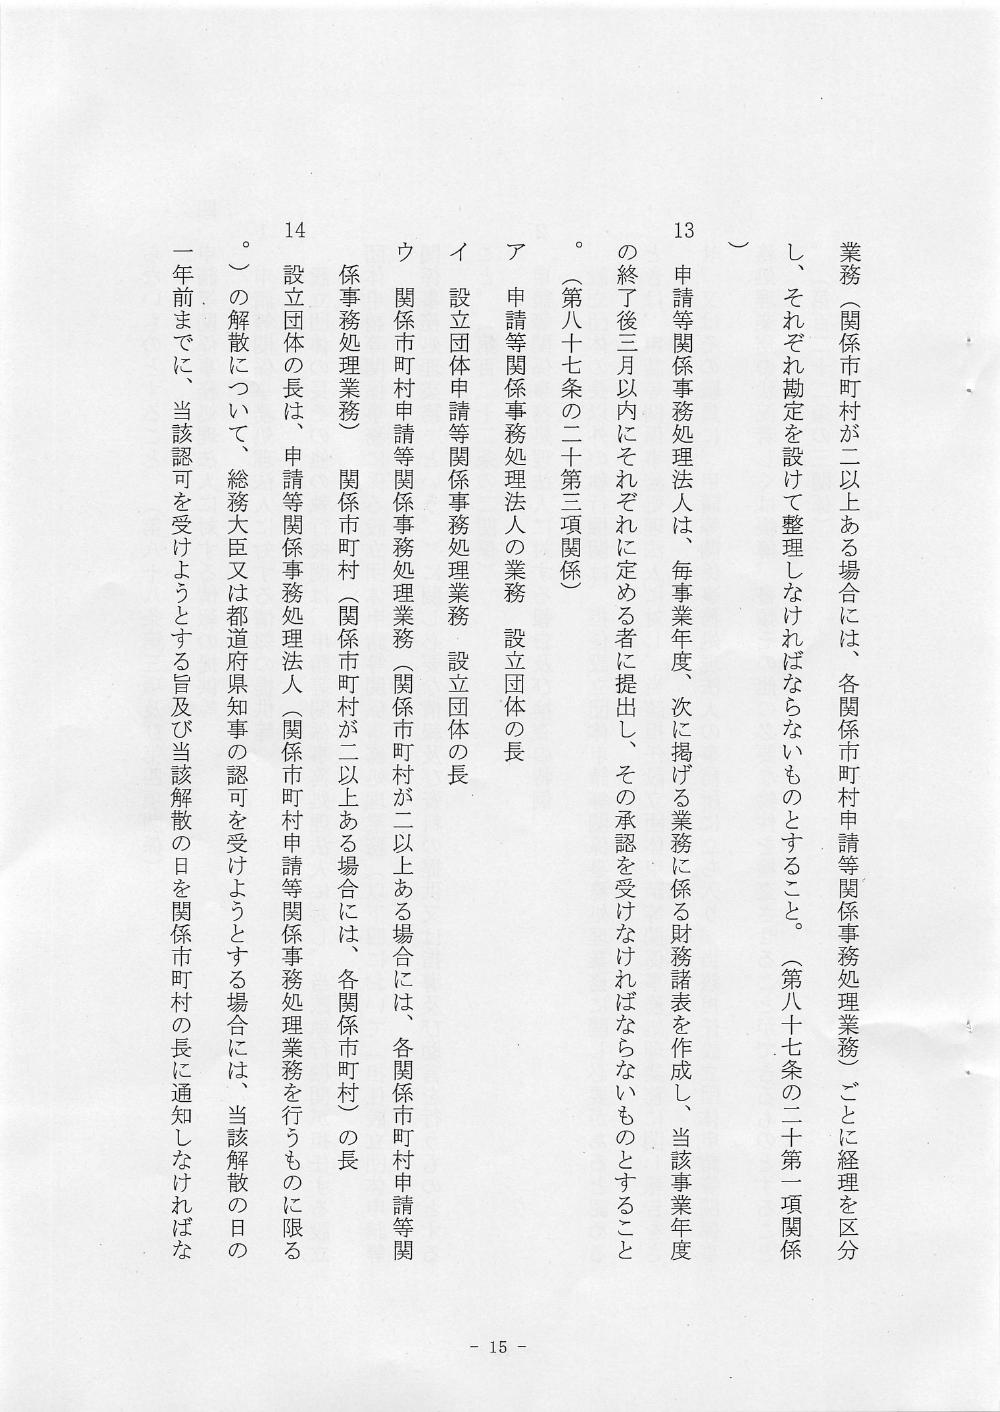 業務（関係市町村が二以上ある場合には、各関係市町村申請等関係事務処理業務）ごとに経理を区分
し、それぞれ勘定を設けて整理しなければならないものとすること。（第八十七条の二十第一項関係
）
13　申請等関係事務処理法人は、毎事業年度、次に掲げる業務に係る財務諸表を作成し、当該事業年度
の終了後三月以内にそれぞれに定める者に提出し、その承認を受けなければならないものとすること
。（第八十七条の二十第三項関係）
ア　申請等関係事務処理法人の業務　設立団体の長
イ　設立団体申請等関係事務処理業務　設立団体の長
ウ　関係市町村申請等関係事務処理業務（関係市町村が二以上ある場合には、各関係市町村申請等関
係事務処理業務）　関係市町村（関係市町村が二以上ある場合には、各関係市町村）の長
14　設立団体の長は、申請等関係事務処理法人（関係市町村申請等関係事務処理業務を行うものに限る
。）の解散について、総務大臣又は都道府県知事の認可を受けようとする場合には、当該解散の日の
一年前までに、当該認可を受けようとする旨及び当該解散の日を関係市町村の長に通知しなければな
- 15 -